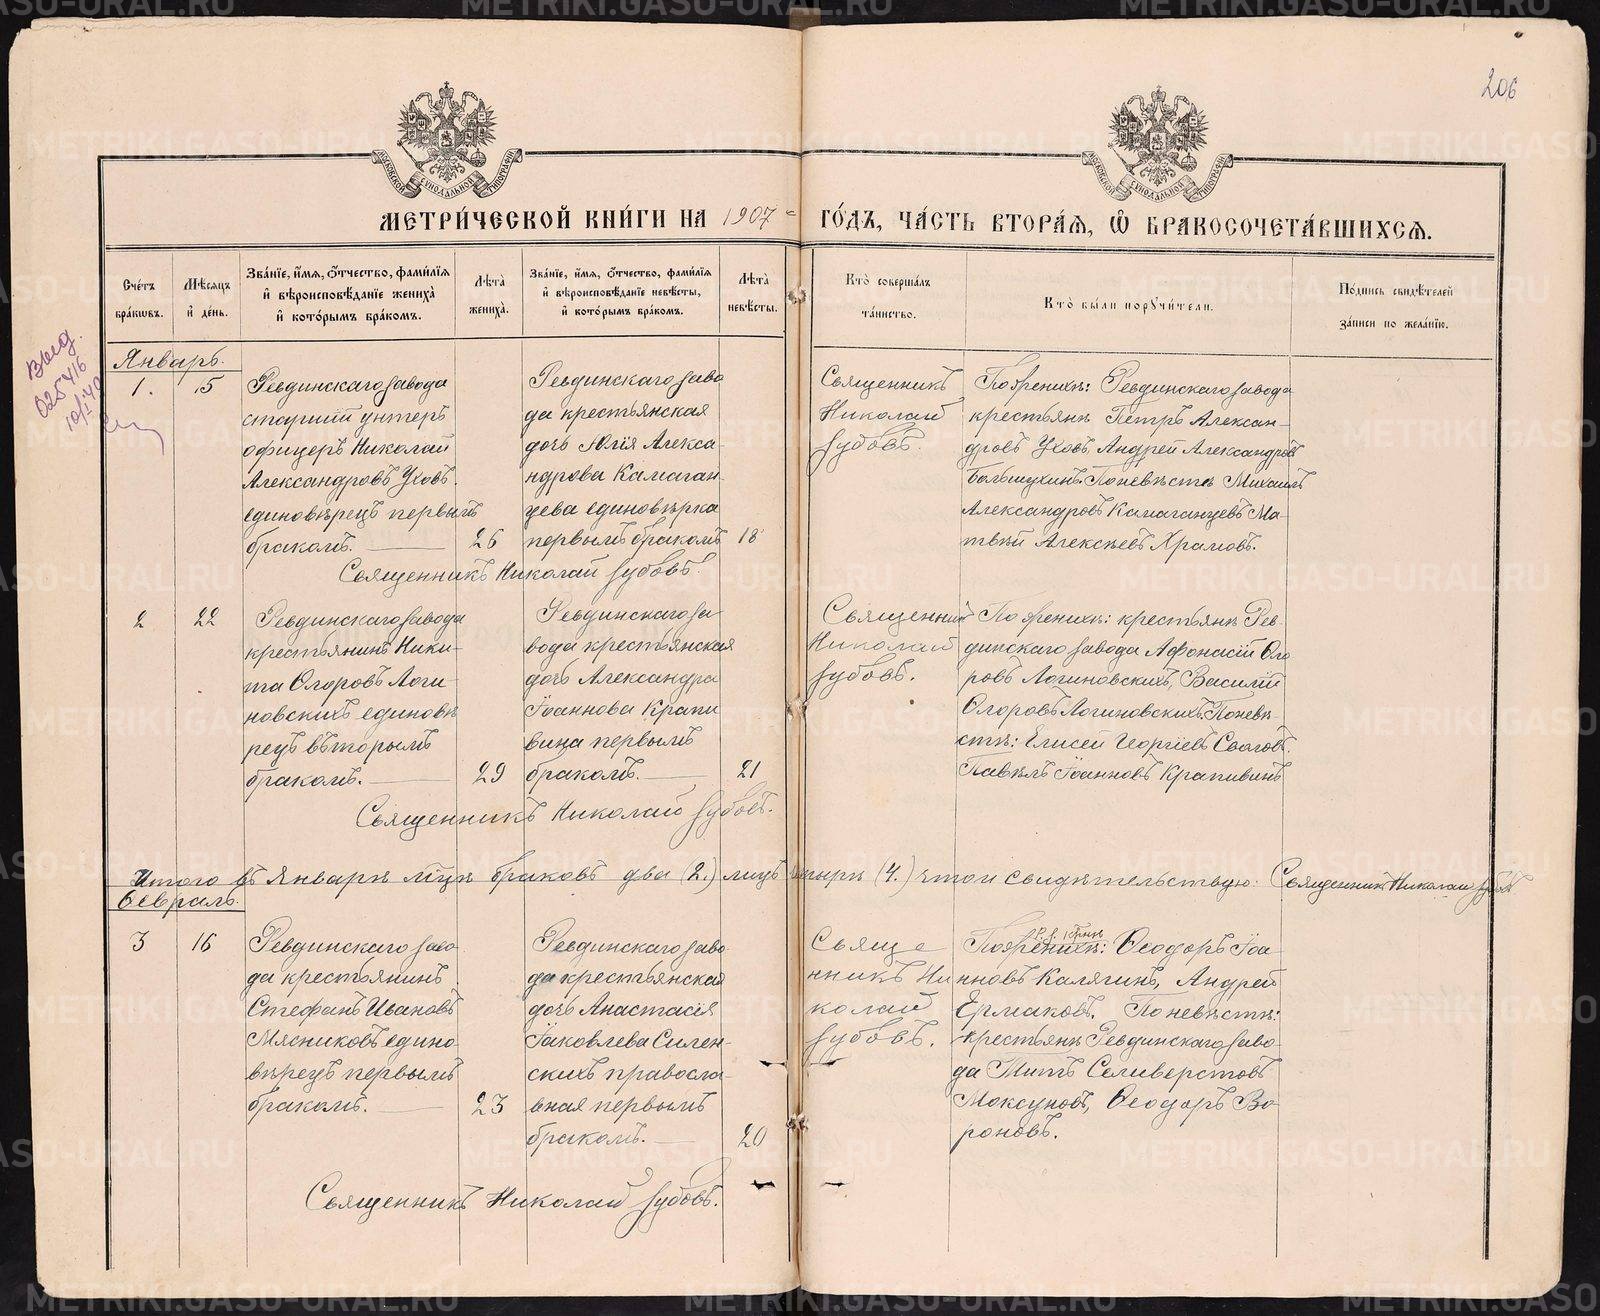 206
МЕТРИ́ЧЕСКОЙ КНИ́ГИ НА 1907 ГО́ДЪ, ЧА́СТЬ ВТОРА́Ѧ, Ѽ БРАКОСОЧЕТА́ВШИХСѦ.
МОСКОВСКОЙ СѴНОДАЛЬНОЙ ТИПОГРАФІИ
МОСКОВСКОЙ СѴНОДАЛЬНОЙ ТИПОГРАФІИ
Сче́тъ бра́кѡвъ.
Мѣ́сяцъ и҆ де́нь.
Зва́нїе, и҆́мя, ѻ҆́тчество, фами́лїя и҆ вѣроисповѣ́данїе жениха̀ и҆ кото́рымъ бра́комъ.
Лѣ́та жениха̀.
Зва́нїе, и҆́мя, ѻ҆́тчество, фами́лїя и҆ вѣроисповѣ́данїе невѣ́сты, и҆ кото́рымъ бра́комъ.
Лѣ́та невѣ́сты.
Кто̀ соверша́лъ та́инство.
Кто̀ бы́ли порꙋчи́тели.
По́дпись свидѣ́телей за́писи по жела́нїю.
выд.
025416
Январь.
1.
15
Ревдинскаго завода
старшій унтеръ
офицеръ Николай
Александровъ Уховъ.
единовѣрецъ первымъ
бракомъ.
26
Ревдинскаго заво
да крестьянская
дочь Юлія Алекса-
ндрова Камаган
цева единовѣрка
первымъ бракомъ
18
Священникъ
Николай
Зубовъ.
По женихѣ: Ревдинскаго завода
крестьяне Петръ Алексан-
дровъ Уховъ, Андрей Александровъ
Большухинъ. По невѣсте Михаилъ
Александровъ Камаганцевъ Ма-
твѣй Алексѣевъ Храмовъ.
Священникъ Николай Зубовъ.
2
22
Ревдинскаго завода
крестьянинъ Ники-
та Егоровъ Логи-
новскихъ единовѣ
рецъ вторымъ
бракомъ.
29
Ревдинскаго за
вода крестьянская
дочь Александра
Іоаннова Крапи
вина первымъ
бракомъ.
21
Священникъ
Николай
Зубовъ.
По женихѣ: крестьяне Рев
динскаго завода Афонасій Его
ровъ Логиновскихъ, Василій
Егоровъ Логиновскихъ. По невѣ-
стѣ: Елисей Георгіевъ
Павелъ Іоанновъ Крапивинъ
Священникъ Николай Зубовъ.
Итого въ Январѣ м҃цѣ браковъ два (2.) лицъ четыре (4.) въ томъ свидѣтельствую: Священникъ Николай Зубовъ
Февраль.
3
16
Ревдинскаго заво
да крестьянинъ
Стефанъ Ивановъ
Мясниковъ едино
вѣрецъ первымъ
бракомъ.
23
Ревдинскаго заво
да крестьянская
дочь Анастасія
Іаковлева Силен-
скихъ правосла-
вная первымъ
бракомъ.
20
Свяще
нникъ Ни
колай
Зубовъ.
Р. з. кр-не
По женихѣ: Ѳеодоръ Іоа-
нновъ Калягинъ, Андрей
Ермаковъ. По невѣстѣ:
крестьяне Ревдинскаго заво-
да Титъ Селиверстовъ
Моксуновъ, Ѳеодоръ Во-
роновъ.
Священникъ Николай Зубовъ.
METRIKI.GASO-URAL.RU